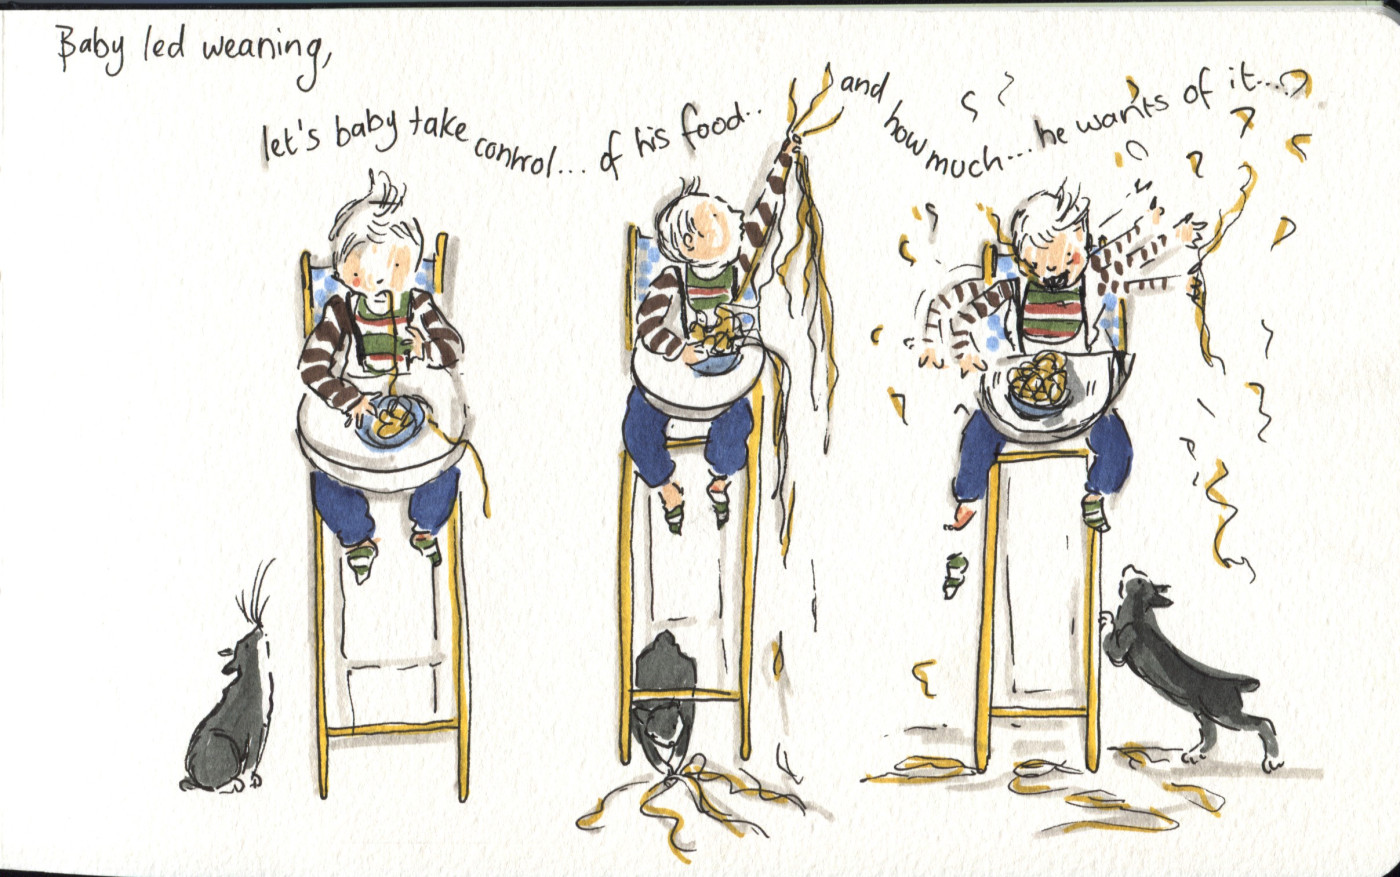 Baby led weaning,
let's baby take control... of his food.. and how much... he wants of it...